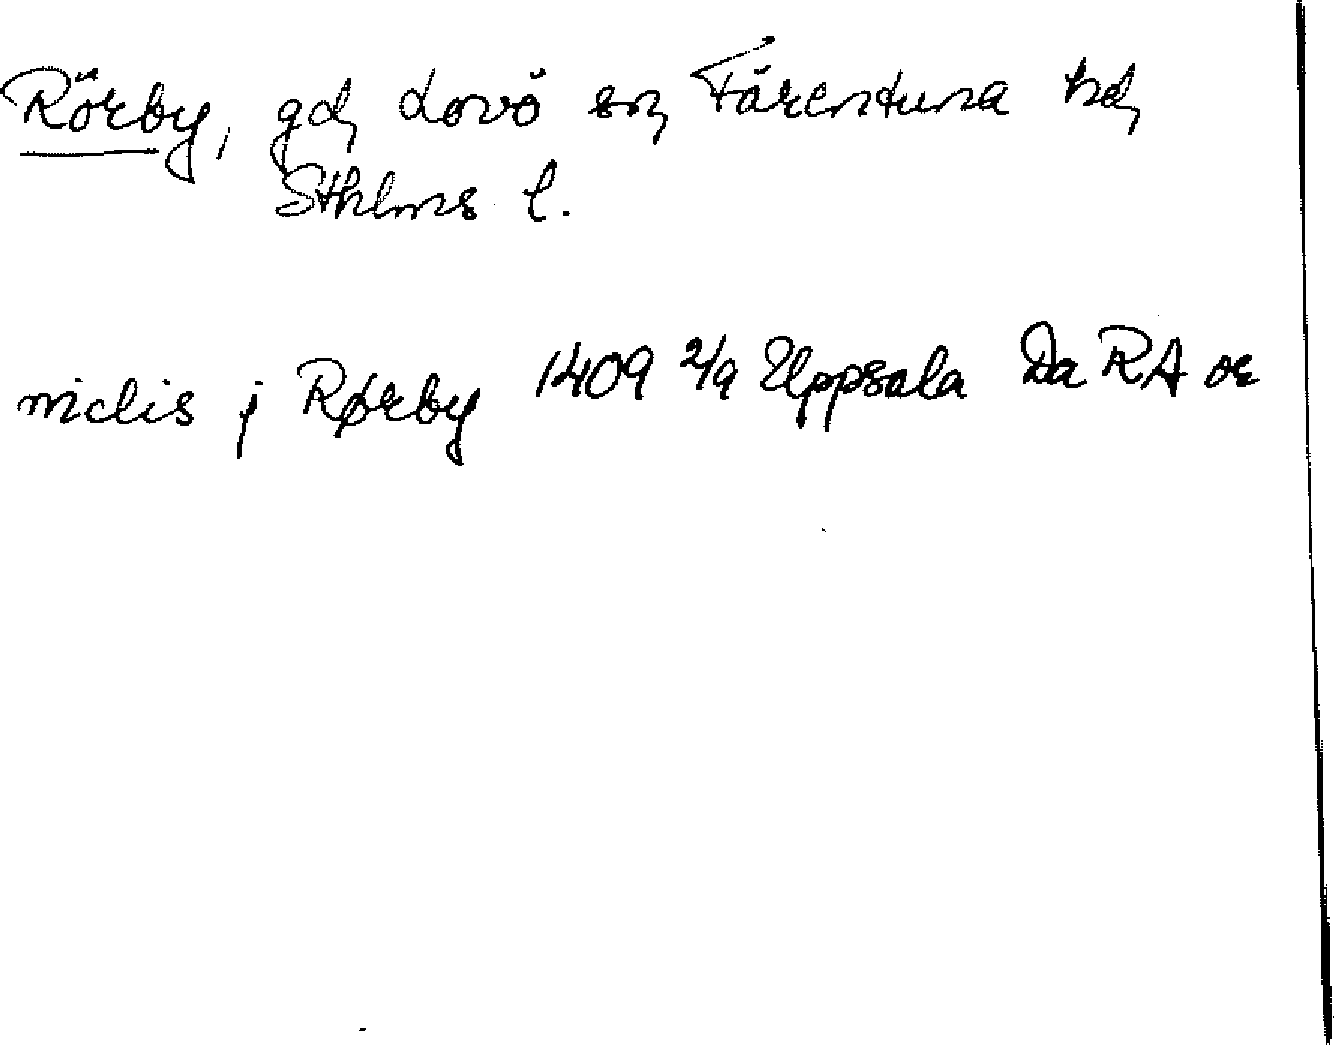 Rörby, gd, Lovö sn, Färentuna hd,
Sthlms l.
niclis j Rørby 1409 2/9 Uppsala Da RA or